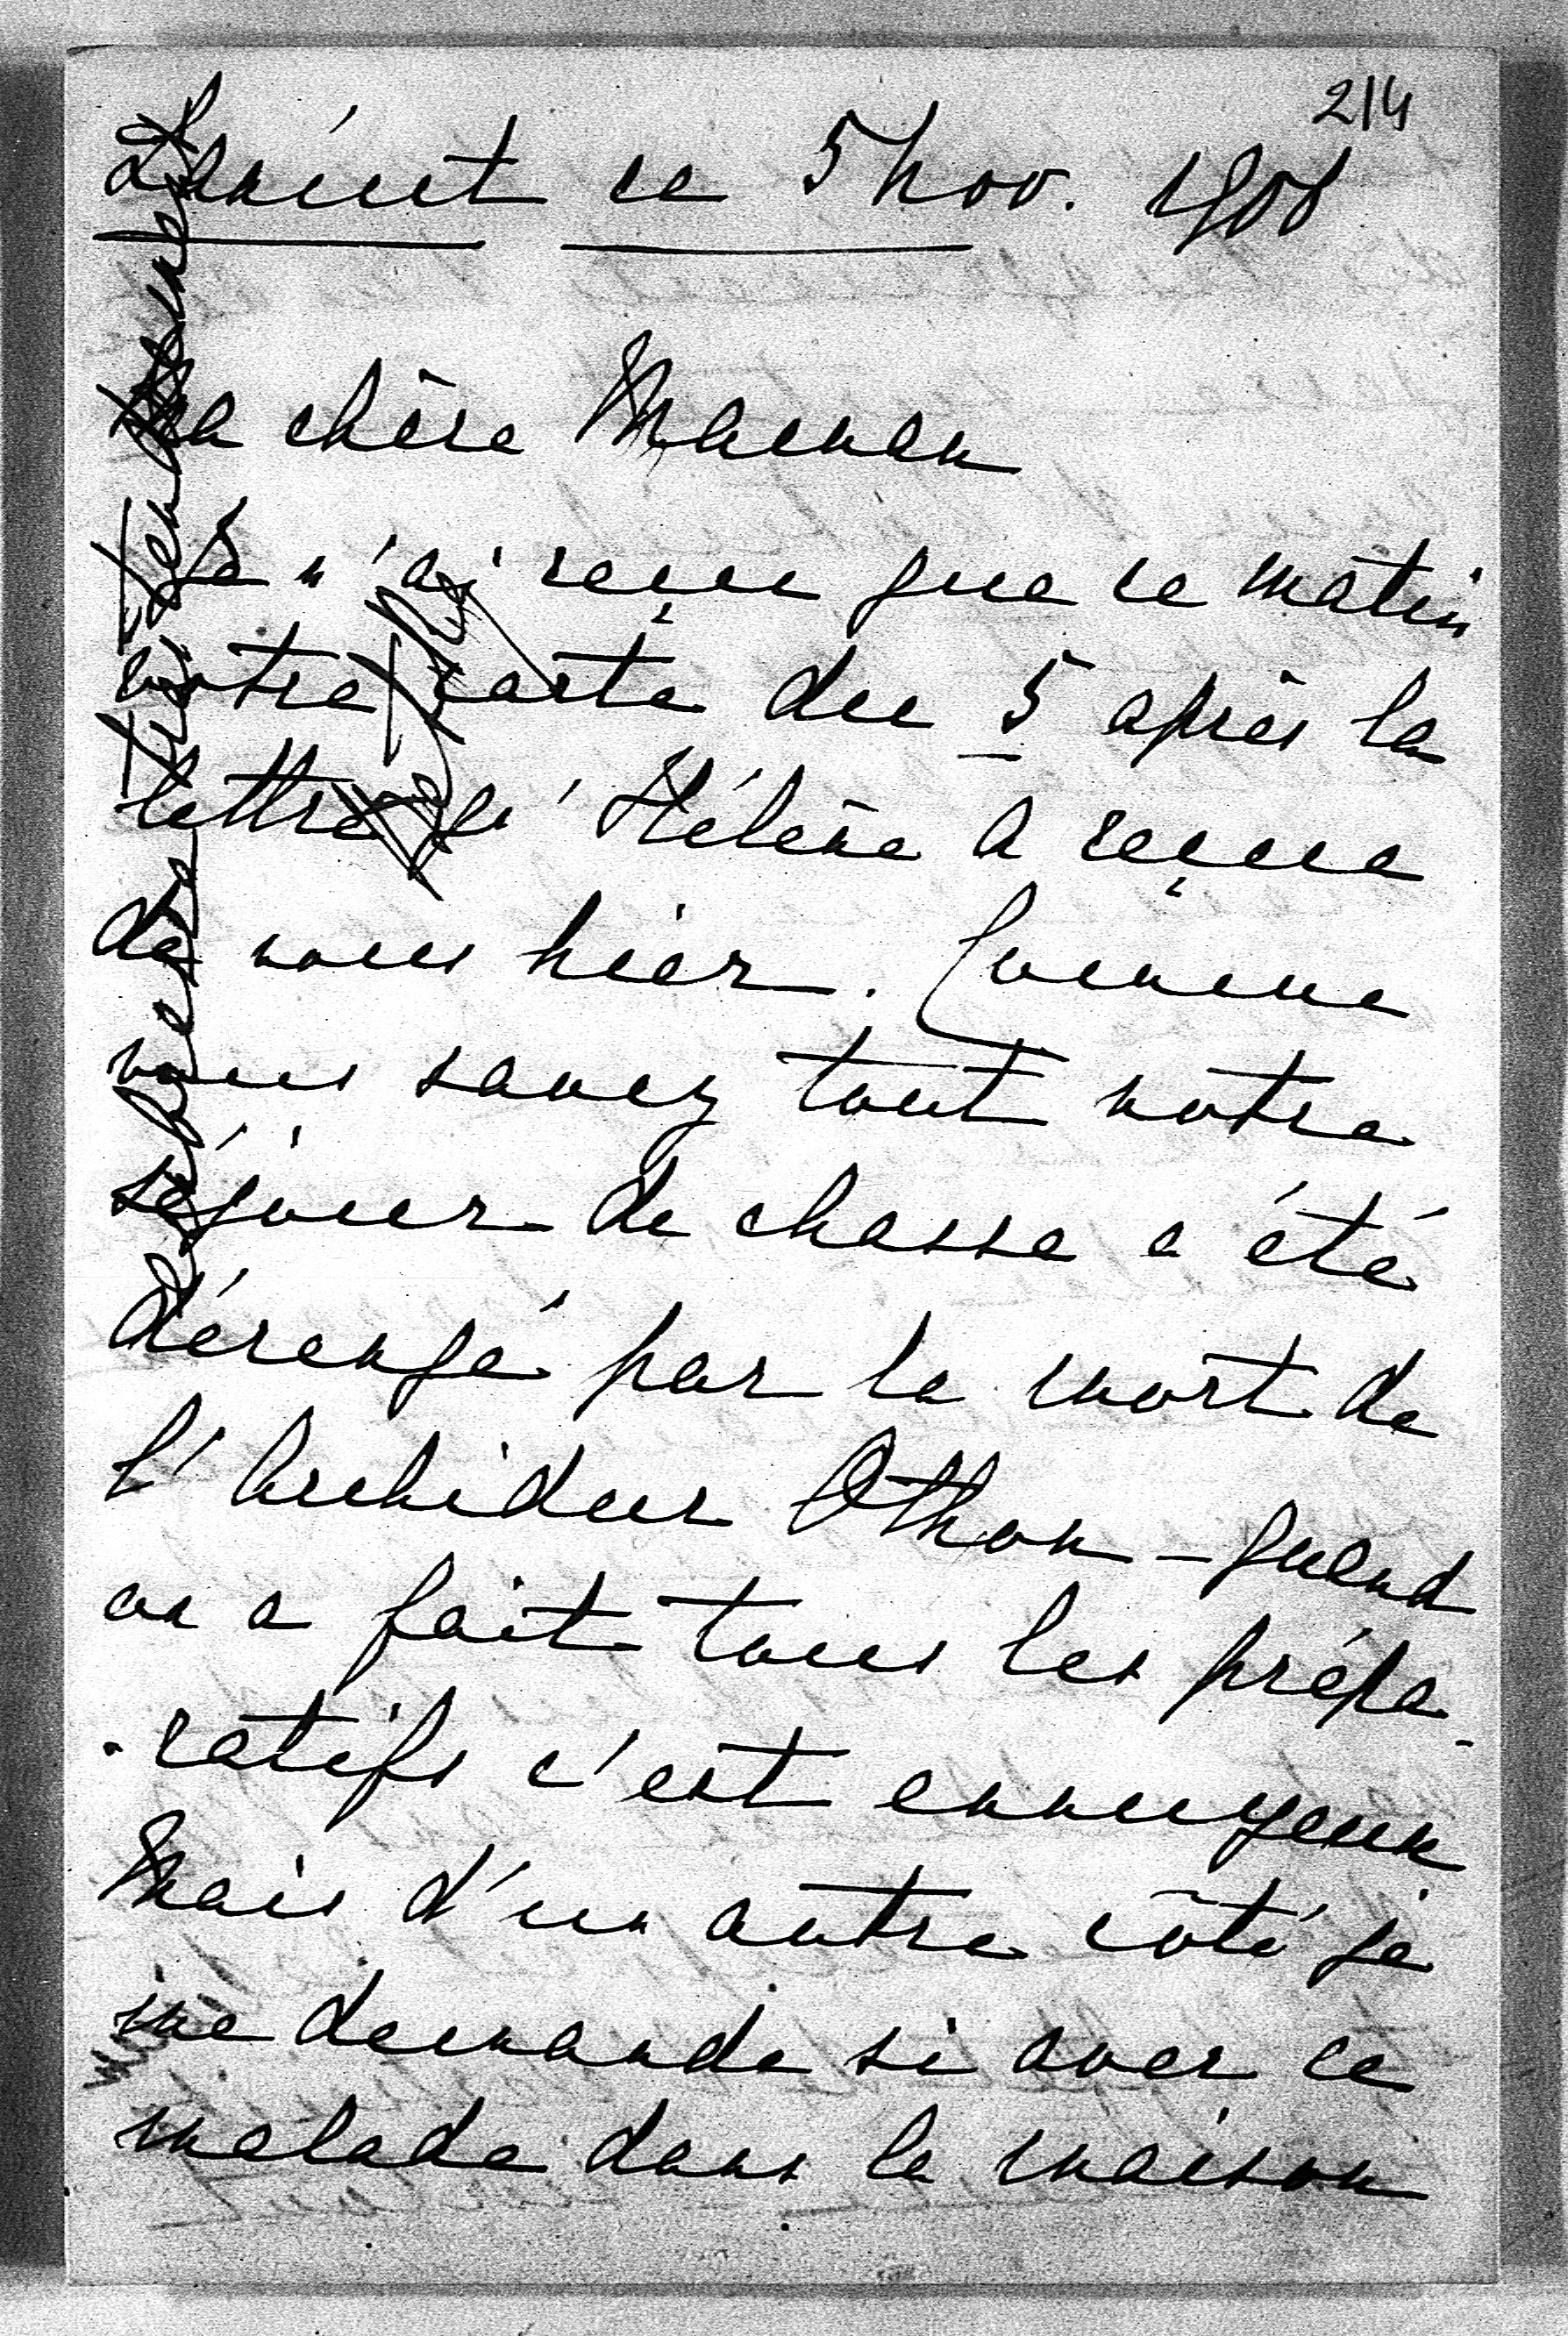 214
Łańcut ce 5 Nov. 1906
Ma chère Maman
Je n'ai reçue que ce matin
votre carte du 5 après la
lettre qu'Hélène a reçue
de vous hier. Comme
vous savez tout notre
séjour de chasse a été
dérangé par la mort de
l'Archiduc Othon – quand
on a fait tous les prépa-
-ratifs c'est ennuyeux
Mais d'un autre côté je
me demande si avec ce
malade dans la maison